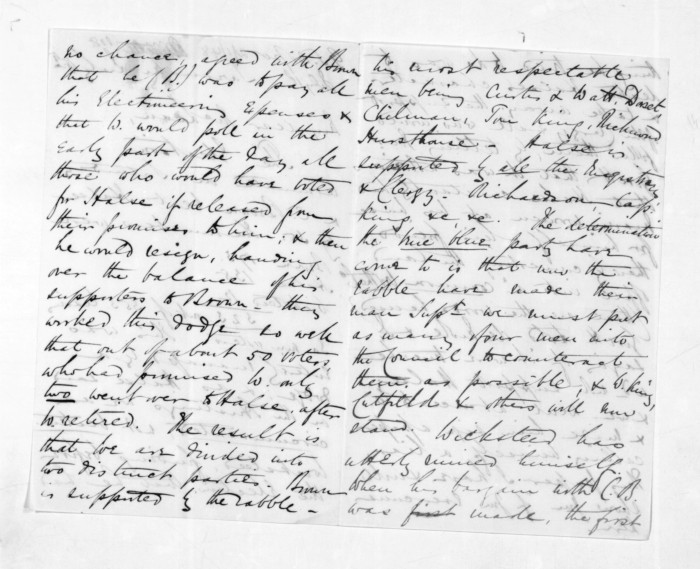 no chance, agreed with Brown
that he (B.) was to pay all
his Electioneering Expenses &
that W. would poll in the
Early part of the day, all
those who would have voted
for Halse if released from
their promises to him, & then
he would resign, handing
over the balance of his
supporters to Brown - they
worked this dodge so well
that out of about 50 votes,
who had promised W. only
two went over to Halse, after
W. retired. The result is
that we are divided into
two distinct parties. Brown
is supported by the rabble -
his most respectable
men being Curtis & Watt, Dorset
Chilman, Tom King, Richmond
Hursthouse - Halse is
supported by all the Magistracy
& Clergy - Richardson, Capt.
King, &c, &c. The determination
the true blue party have
come to is that now the
rabble have made their
man Supt. we must put
as many of our men into
the Council to counteract
them, as possible, & W. King,
Cutfield & others will now
stand. Wicksteed has
utterly ruined himself.
When his bargain with C.B.
was first made, the first